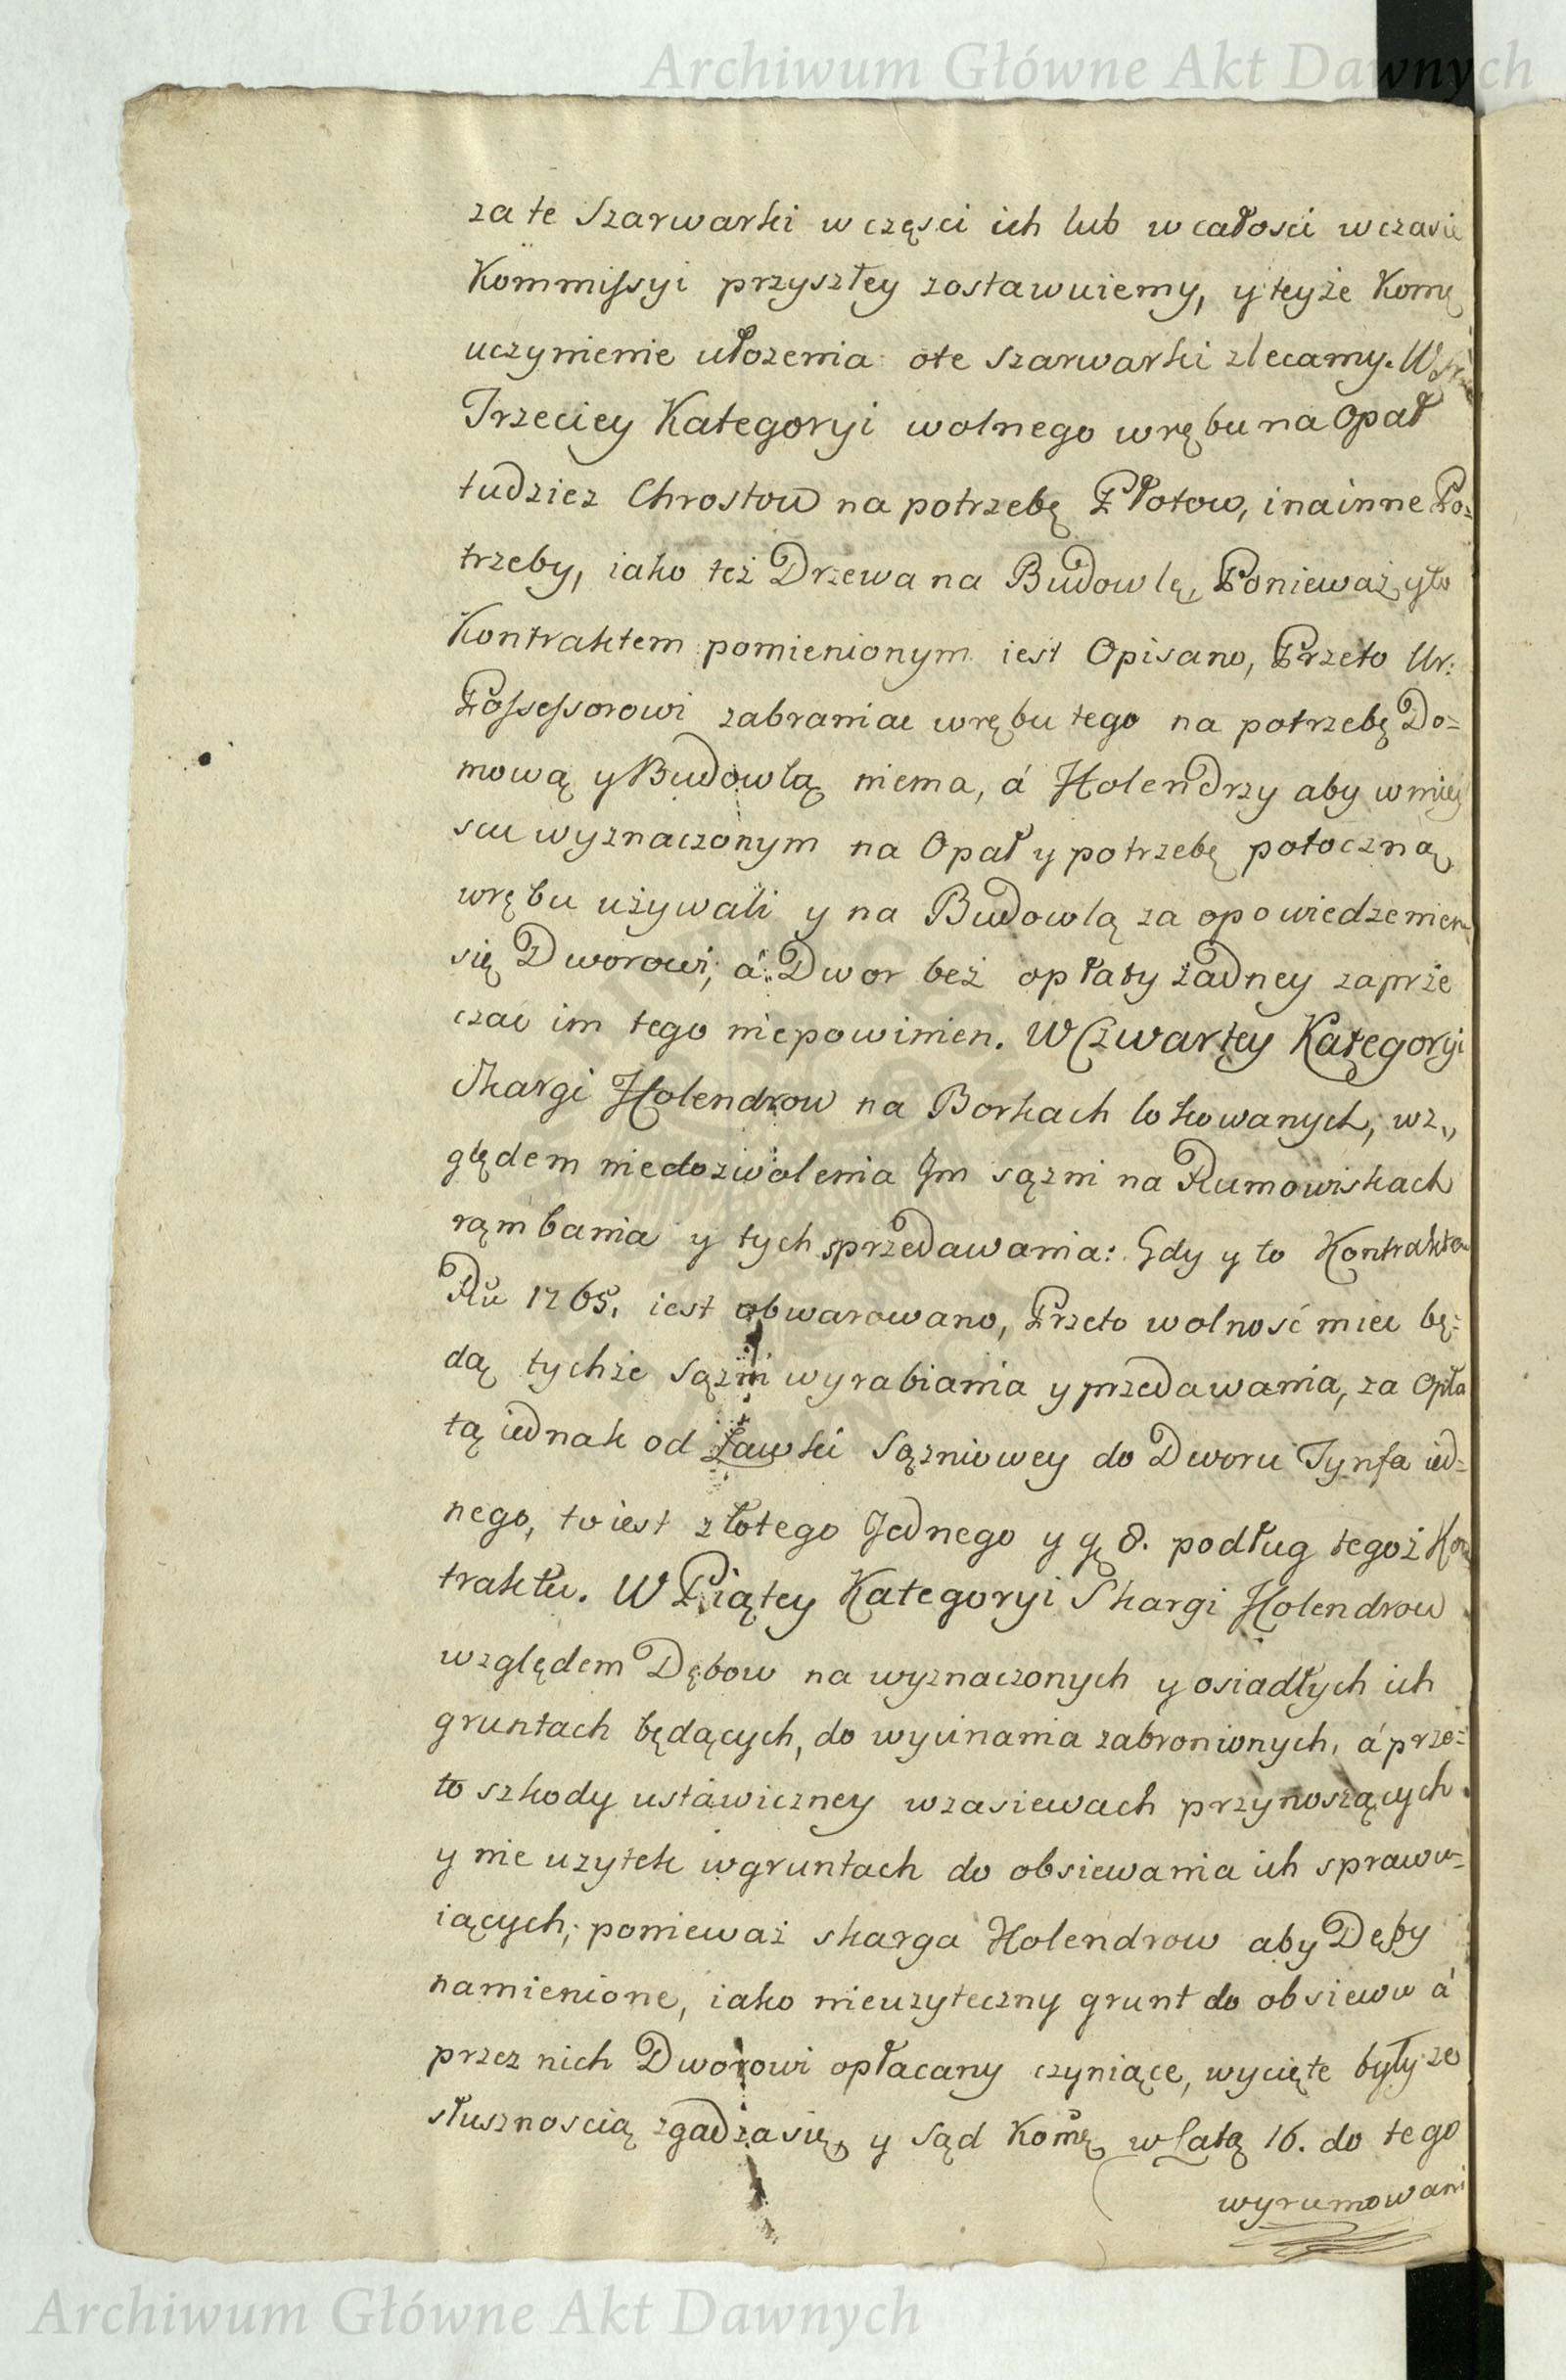 Archiwum Główne Akt Dawnych
za te Szarwarki w częsci ich lub w całosci w czasie
Kommissyi przyszłey zostawuiemy, y teyże Kom͠ę
uczynienie ułozenia ote szarwarki zlecamy. W
Trzeciey Kategoryi wolnego wrębu na Opał
tudziez Chrostow na potrzebę Płotow, i na inne Po=
trzeby, iako też Drzewa na Budowlę, Ponieważ y to
Kontraktem pomienionym iest Opisano, Przeto Ur:
Possessorowi zabraniac wrębu tego na potrzebę Do=
mową y Budowlą niema, á Holendrzy aby w miey
scu wyznaczonym na Opał y potrzebę potoczną
wrębu używali y na Budowlą za opowiedzeniem
się Dworowi, á Dwor beż opłaty żadney zaprze
czac im tego niepowinien. W Czwartey Kategoryi
Skargi Holendrow na Borkach lokowanych, wz„
ględem niedozwolenia Im sązni na Rumowiskach
rąmbania y tych sprzedawania: Gdy y to Kontraktem
Rŭ 1765. iest obwarowano, Przeto wolność miec bę=
dą tychże Sązni wyrabiania y przedawania, za Opła
tą iednak od Ławki Sązniowey do Dworu Tynfa ied=
nego, to iest złotego Jednego y gę 8. podług tegoż Kon
traktu. W Piątey Kategoryi Skargi Holendrow
względem Dębow na wyznaczonych y osiadłych ich
gruntach będących, do wycinania zabronionych, á prze=
to szkody ustáwiczney w zasiewach przynoszących
y nie uzytek w gruntach do obsiewania ich sprawu=
iących; ponieważ skarga Holendrow aby Dęby
namienione, iako nieuzyteczny grunt do obsiewu á
przez nich Dworowi opłacany czyniące, wycięte były ze
słusznoscią zgadza się, y Sąd Kom͠ę w Latą 16. do tego
wyrumowani
Archiwum Główne Akt Dawnych